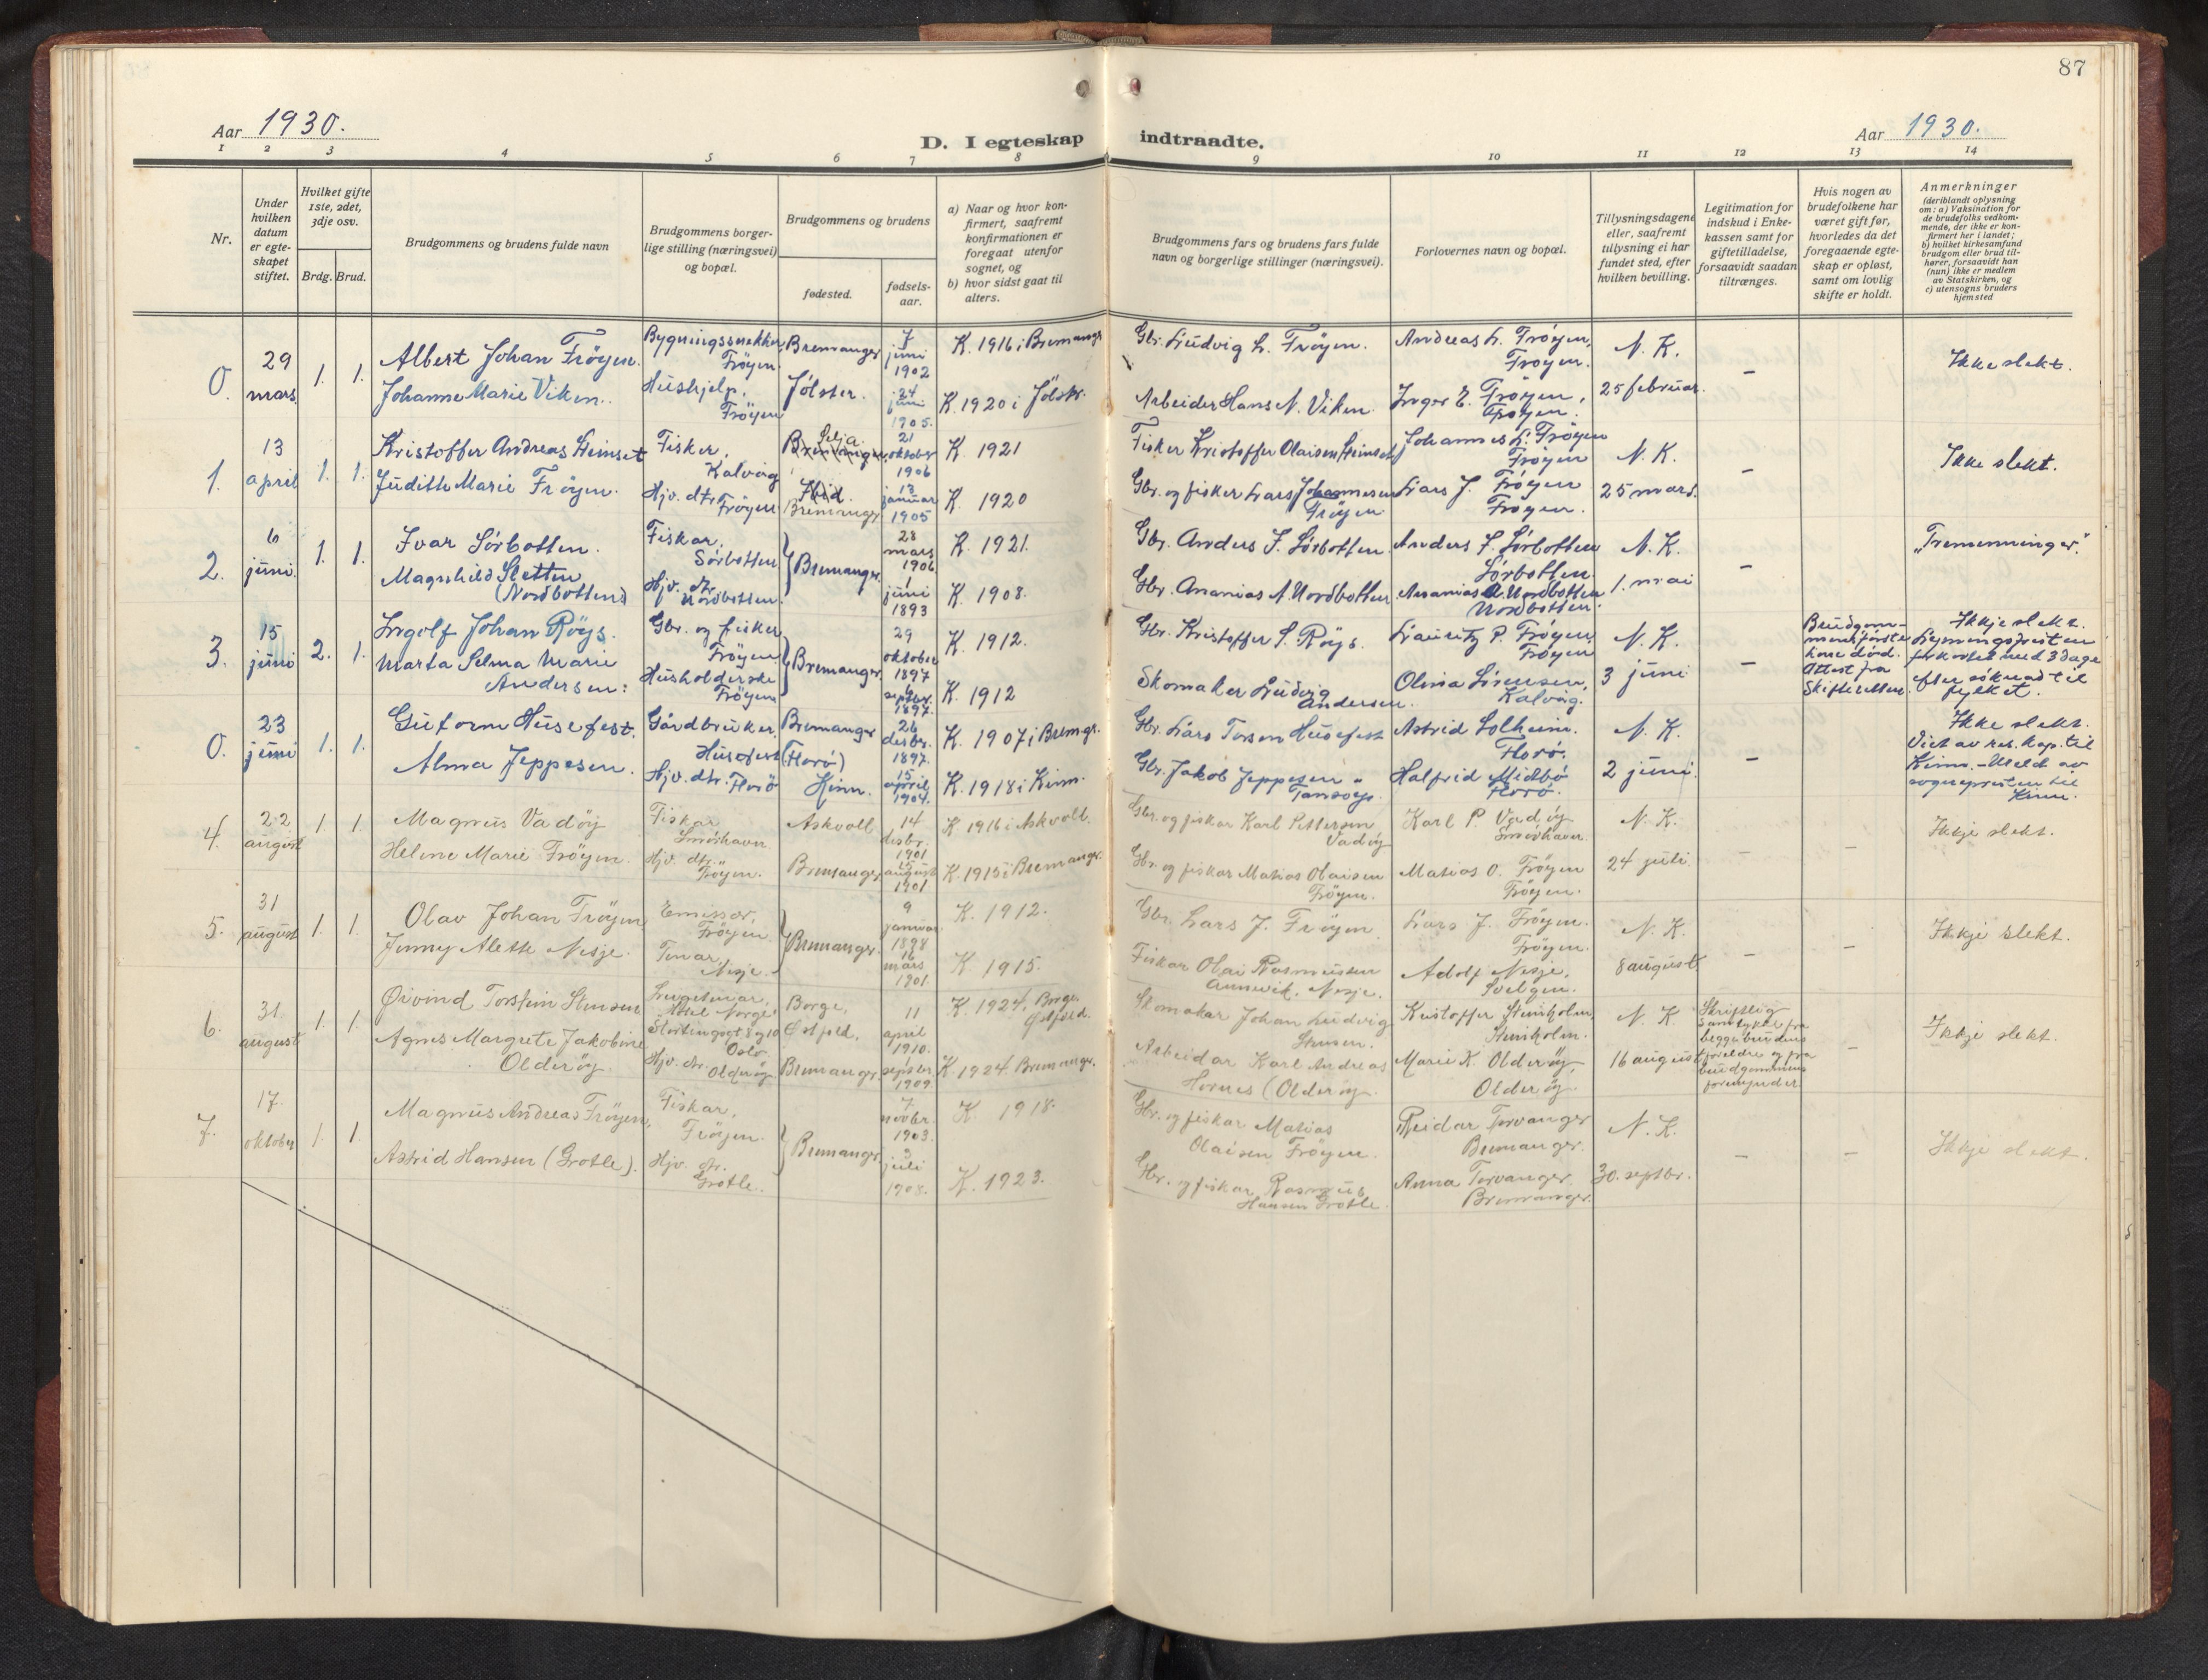 87
Aar 1930.
D. I egteskap indtraadte.
Aar 1930.
1 2 3 4 5 6 7 8 9 10 11 12 13 14
Nr.
Under hvilken datum er egteskapet stiftet.
Hvilket gifte 1ste, 2det, 3dje osv.
Brdg. Brud.
Brudgommens og brudens fulde navn
Brudgommens borgerlige stilling (næringsvei) og bopæl.
Brudgommens og brudens
fødested.
fødselsaar.
a) Naar og hvor konfirmert, saafremt konfirmationen er foregaat utenfor sognet, og
b) hvor sidst gaat til alters.
Brudgommens fars og brudens fars fulde navn og borgerlige stillinger (næringsvei).
Forlovernes navn og bopæl.
Tillysningsdagene eller, saafremt tillysning ei har fundet sted, efter hvilken bevilling.
Legitimation for indskud i Enkekassen samt for giftetilladelse, forsaavidt saadan tiltrænges.
Hvis nogen av brudefolkene har været gift før, hvorledes da det foregaaende egteskap er opløst, samt om lovlig skifte er holdt.
Anmerkninger (deriblandt oplysning om: a) Vaksination for de brudefolks vedkommende, der ikke er konfirmert her i landet; b) hvilket kirkesamfund brudgom eller brud tilhører, forsaavidt han (hun) ikke er medlem av Statskirken, og c) utensogns bruders hjemsted
0. 29 mars 1. 1.
Albert Johan Frøyen. Bygningssnekker, Frøyen. Bremanger 7 juni 1902 K. 1916 i Bremangr. Gbr. Ludvig L. Frøyen. Andreas L. Frøyen, Frøyen. N. K. – Ikke slekt.
Johanne Marie Viken. Hushjelp, Frøyen Jølster. 24 juni 1905. K. 1920 i Jølstr. Arbeider Hans N. Viken. Inger E. Frøyen, Frøyen. 25 februar.
1. 13 april 1. 1.
Kristoffer Andreas Heimset Fisker, Kalvåg Selja 21 oktober 1906 K. 1921 Fisker Kristoffer Olaisen Heimset Johannes L. Frøyen Frøyen N. K. – Ikke slekt.
Judith Marie Frøyen. Hjv. dtr. Frøyen Bremangr. 13 januar 1905 K. 1920 Gbr. og fisker Lars Johannesen Frøyen Lars J. Frøyen Frøyen. 25 mars.
2. 6 juni. 1. 1.
Ivar Sørbotten. Fiskar, Sørbotten Bremanger. 28 mars 1906 K. 1921. Gbr. Anders J. Sørbotten. Anders J. Sørbotten Sørbotten. N. K. – "Tremenninger".
Magnhild Sletten (Nordbotten) Hjv. dtr. Nordbotten. 1 juni 1893 K. 1908. Gbr. Ananias A. Nordbotten Ananias A. Nordbotten Nordbotten. 1. mai
3. 15 juni 2. 1.
Ingolf Johan Røys. Gbr. og fisker Frøyen. Bremanger. 29 oktober 1897 K. 1912. Gbr. Kristoffer S. Røys. Lauritz P. Frøyen Frøyen N. K. – Brudgommens første kone død. Attest fra Skifteretten. Ikkje slekt. Lysningsfristen forkortet med 3 dage efter søknad til fylket.
Marta Selma Marie Andersen: Husholderske Frøyen septbr. 1897. K. 1912 Skomaker Ludvig Andersen. Olina Sørensen, Kalvåg. 3 juni
0. 23 juni 1. 1.
Guttorm Husefest. Gårdbruker, Husefest (Florø) Bremanger 26 desbr. 1897. K. 1907 i Bremgr. Gbr. Lars Torsen Husefest Astrid Solheim. Florø. N. K. – Ikke slekt. Viet av res. kap. til Kinn. – Meld av sogneprestem til Kinn.
Alma Jeppesen. Hjv. dtr. Florø Kinn. 15 april 1904. K. 1918 i Kinn. Gbr. Jakob Jeppesen Tansøy. Halfrid Midbø Florø. 2 juni.
4. 22 august 1. 1.
Magnus Vadøy Fiskar Smørhavn Askvoll 14 desbr. 1901 K. 1916 i Askvoll. Gbr. og fiskar Karl Pettersen Vadøy Karl P. Vadøy Smørhavn. N. K. – – Ikkje slekt.
Helene Marie Frøyen. Hjv. dtr. Frøyen. Bremanger 15 august 1901 K. 1915 i Bremangr. Gbr. og fiskar Matias Olaisen Frøyen. Matias O. Frøyen Frøyen. 24 juli.
5. 31 august 1. 1.
Olav Johan Frøyen Emissær, Frøyen. Bremangr. 9 januar 1898 K. 1912. Gbr. Lars J. Frøyen Lars J. Frøyen. Frøyen. N. K. – – Ikkje slekt.
Jenny Alette Nesje. Nesje. 16 mars 1901. K. 1915. Fiskar Olai Rasmussen Nesje. Adolf Nesje, Svelgen. 8 august.
6. 31 august 1. 1.
Øivind Torstein Stensen Hotel Norge Stortingsgt 8 og 10 Oslo. Borge, Østfold. 11 april 1910. K. 1924, Borge, Østfold. Skomakar Johan Ludvig Stensen. Kristoffer Steinholm, Steinholm. N. K. Skriftlig samtykke fra begge brudens foreldre og fra brudgommens formynder – Ikkje slekt.
Agnes Margrete Jakobine Olderøy. Hjv. dtr. Olderøy Bremangr. septbr. 1909 K. 1924 Bremangr. Arbeidar Karl Andreas Hornes (Olderøy. Marie K. Olderøy, Olderøy. 16 august
7. 17. oktober 1. 1.
Magnus Andreas Frøyen, Fiskar, Frøyen. Bremangr. 7. novbr. 1903. K. 1918. Gbr. og fiskar Matias Olaisen Frøyen. Reidar Torvanger Bremanger. N. K. – – Ikkje slekt.
Astrid Hansen (Grotle). Hjv. dtr. Grotle. 3 juli 1908. K. 1923. Gbr. og fiskar Rasmus Hansen Grotle. Anna Torvanger Bremanger. 30. septbr.